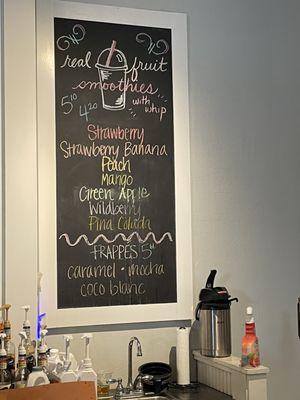 real fruit
smoothies
5¹⁰ 4²⁰ with whip
Strawberry
Strawberry Banana
Peach
Mango
Green Apple
Wildberry
Pina Colada
FRAPPES
caramel • mocha
coco blanc